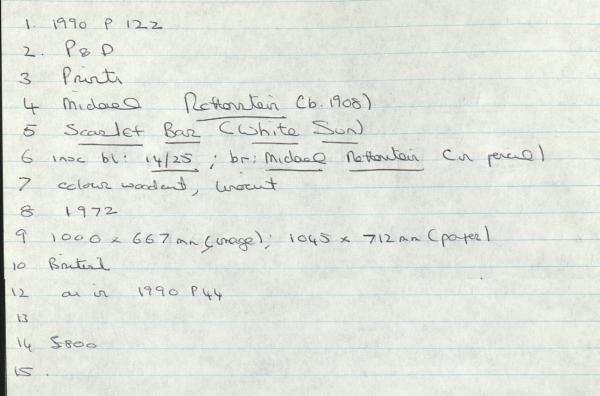 1. 1990 P 122
2. P & D
3 Prints
4 Michael Rothenstein (b. 1908)
5 Scarlet Bar (White Sun)
6 insc bl: 14/25 ; br: Michael Rothenstein (in pencil)
7 colour woodcut, linocut
8 1972
9 1000 x 667 mm (image); 1045 x 712 mm (paper)
10 British
12 as in 1990 P44
13
14 £800
15.